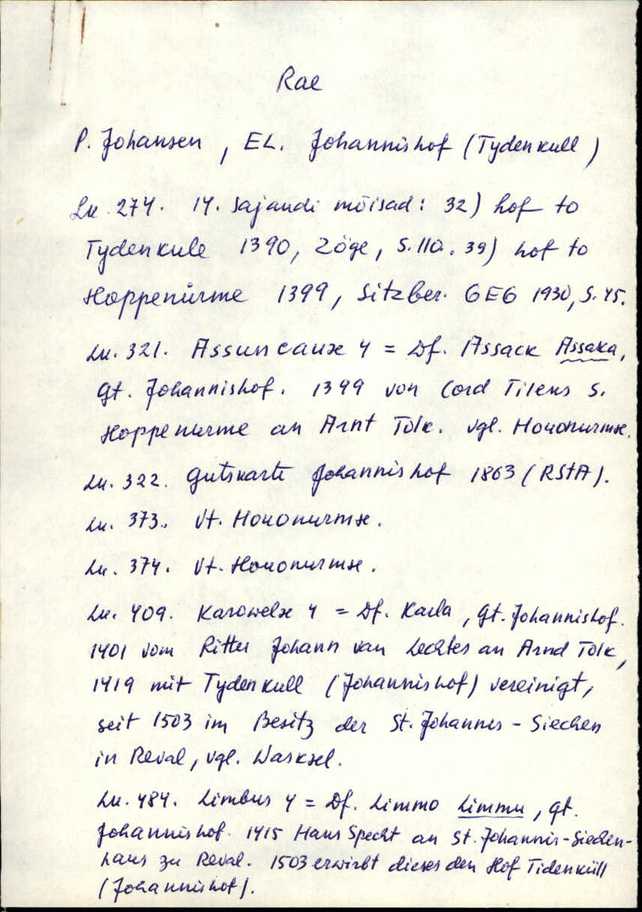 Rae
P. Johansen, EL. Johannishof (Tydenkull)
Lk. 274. 14. sajandi mõisad: 32) hof to
Tydenkule 1390, Zöge, S. 110. 39) hof to
Hoppenürme 1399, Sitzber. GEG 1930, S. 45.
Lk. 321. Assuncauxe 4 = Df. Assack Assaka,
gt. Johannishof. 1399 von Cord Tirens s.
Hoppenurme an Arnt Tolk. vgl. Hononurmse.
Lk. 322. Gutskarte Johannishof 1863 (RStA).
Lk. 373. Vt. Hononurmse.
Lk. 374. Vt. Hononurmse.
Lk. 409. Karowelxe 4 = Df. Karla, gt. Johannishof.
1401 vom Ritter Johann van Lechtes an Arnd Tolk,
1419 mit Tydenkull (Johannishof) vereinigt,
seit 1503 im Besitz der St. Johannis-Siechen
in Reval, vgl. Warksel.
Lk. 484. Limbus 4 = Df. Limmo Limmu, gt.
Johannishof. 1415 Hans Specht an St. Johannis-Siechen-
haus zu Reval. 1503 erwirbt dieses den Hof Tidenküll
(Johannishof).